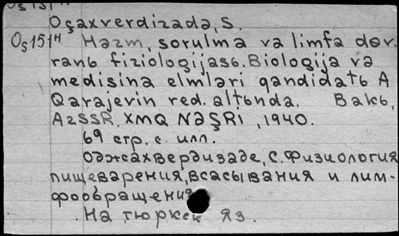 Oçaxverdizadə, S.
Os151н Həzm, sorulma və limfa dov-
ranь fiziologijasь. Biologija və
medisina elmləri qandidatь A
Qarajevin red. altьnda. Bakь,
AzSSR. XMQ NƏŞRI, 1940.
69 стр. с илл.
Оджахвердизаде, С. Физиология
пищеварения, всасывания и лим-
фообращения
На тюркск яз.